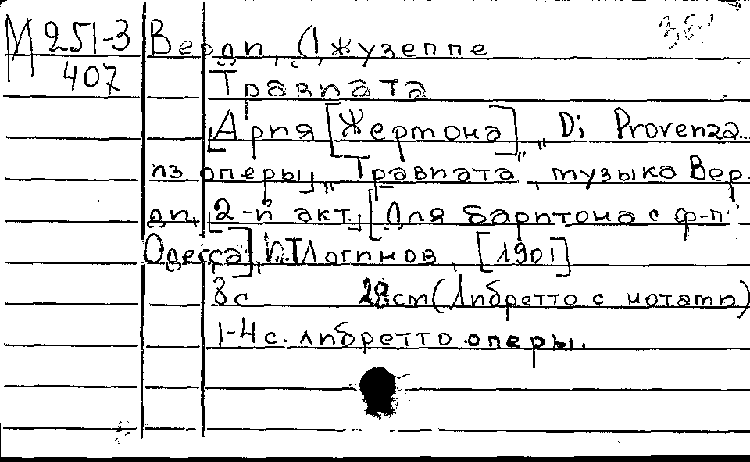 М 251-3
407
Верди, Джузеппе
Травиата
[Ария [Жермона] „Di Provenza"
из оперы] „Травиата", музыка Вер-
ди, [2-й акт] [Для баритона с ф-п
Одесса], И.Т. Логинов, [190!]
8 с 28 cm (Либретто с нотами)
1-4 с. либретто оперы.